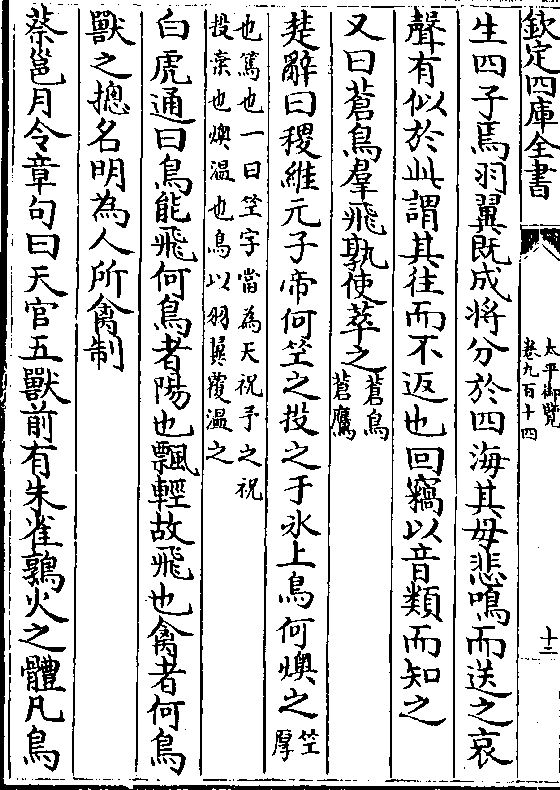 欽定四庫全書
太平御覽
卷九百十四
十二
生四子焉羽翼既成將分於四海其母悲鳴而送之哀
聲有似於此謂其往而不返也回竊以音類而知之
又曰蒼鳥羣飛孰使萃之蒼鳥蒼鷹
楚辭曰稷維元子帝何竺之投之于氷上鳥何燠之竺厚
也篤也一曰竺字當為天祝予之祝
投棄也燠溫也鳥以羽翼覆溫之
白虎通曰鳥能飛何鳥者陽也飄輕故飛也禽者何鳥
獸之摠名明為人所禽制
蔡邕月令章句曰天官五獸前有朱雀鶉火之體凡鳥